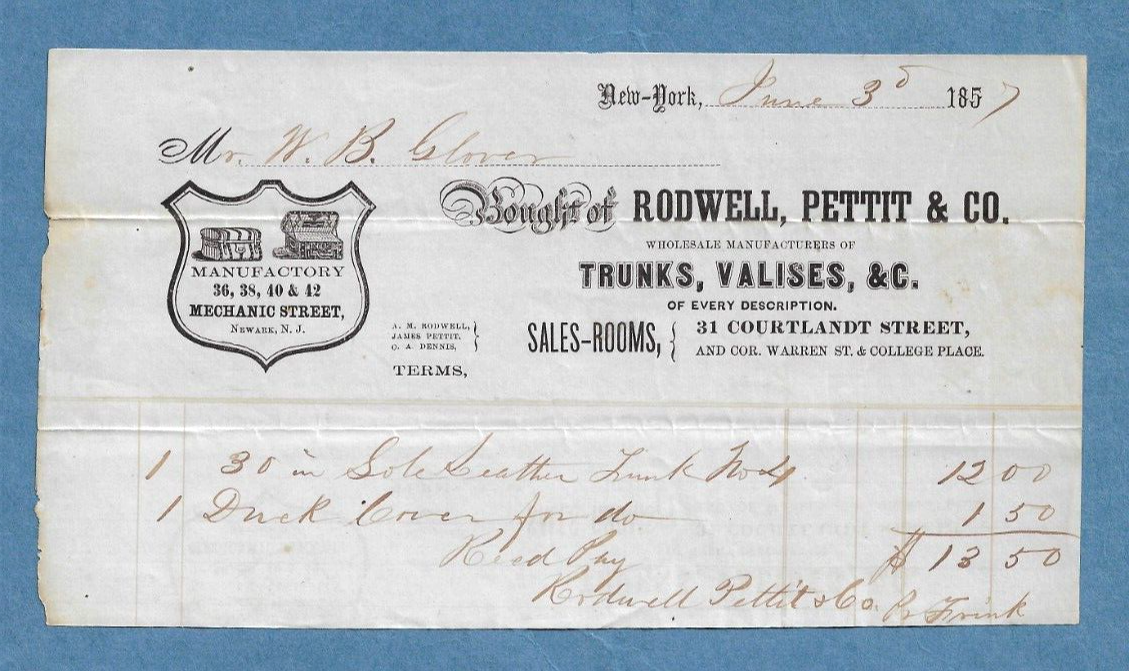 New-York, June 3d 1857
Mr. W. B. Glover
Bought of RODWELL, PETTIT & CO.
WHOLESALE MANUFACTURERS OF
TRUNKS, VALISES, &C.
OF EVERY DESCRIPTION.
MANUFACTORY
36, 38, 40 & 42
MECHANIC STREET,
NEWARK, N. J.
A. M. RODWELL,
JAMES PETTIT,
O. A. DENNIS,
TERMS,
SALES-ROOMS, { 31 COURTLANDT STREET,
AND COR. WARREN ST. & COLLEGE PLACE.
1 30 in Sole Leather Trunk No 4 12 00
1 Duck Cover for do 1 50
Recd Pay $ 13 50
Rodwell Pettit & Co. Pr Frink